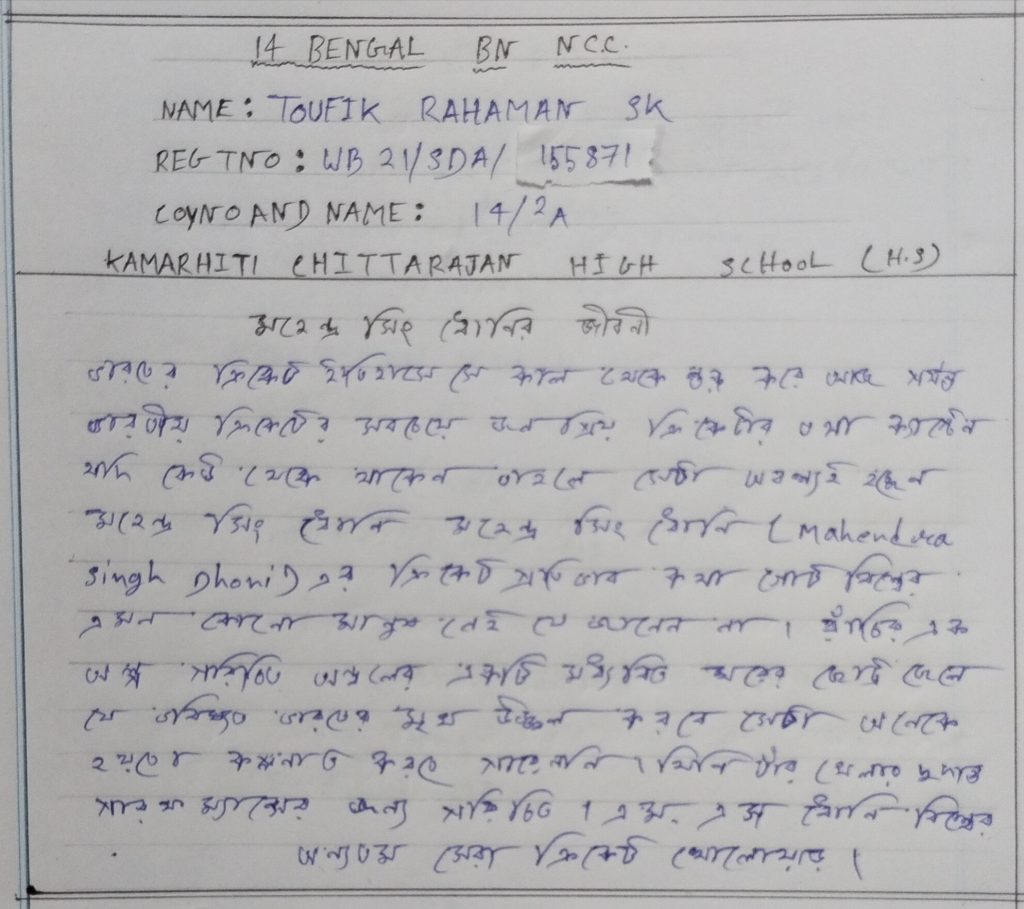 14 BENGAL BN N.C.C.
NAME: TOUFIK RAHAMAN SK
REGTNO: WB 21/SDA/ 155871
COYNO AND NAME: 14/2A
KAMARHITI CHITTARAJAN HIGH SCHOOL (H.S)
মহেন্দ্র সিং ধোনির জীবনী
ভারতের ক্রিকেট ইতিহাসে সে কাল থেকে শুরু করে আজ পর্যন্ত
ভারতীয় ক্রিকেটের সবচেয়ে জনপ্রিয় ক্রিকেটার তথা ক্যাপ্টেন
যদি কেউ থেকে থাকেন তাহলে সেটা অবশ্যই হচ্ছেন
মহেন্দ্র সিং ধোনি মহেন্দ্র সিং ধোনি (Mahendra
Singh Dhoni) এর ক্রিকেট প্রতিভার কথা গোটা বিশ্বের
এমন কোনো মানুষ নেই যে জানেন না। রাঁচির এক
অল্প পরিচিত অঞ্চলের একটি মধ্যবিত্ত ঘরের ছোট্ট ছেলে
যে ভবিষ্যত ভারতের মুখ উজ্জ্বল করবে সেটা অনেকে
হয়তো কল্পনাও করতে পারেননি। যিনি তাঁর খেলার দুর্দান্ত
পারফম্যান্সের জন্য পরিচিত। এম. এস ধোনি বিশ্বের
অন্যতম সেরা ক্রিকেট খেলোয়াড়।